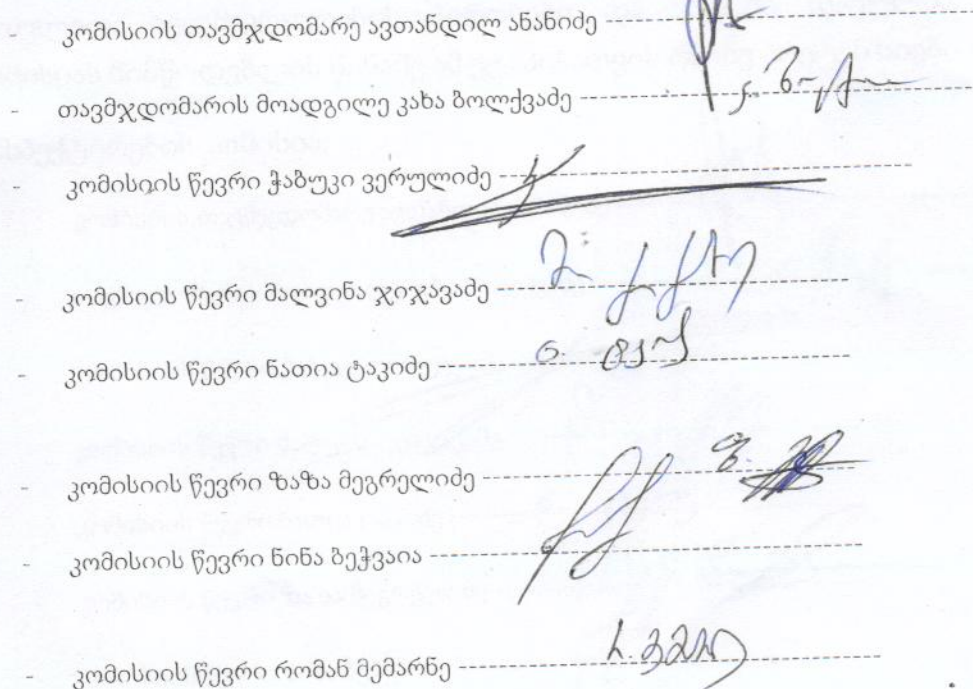 კომისიის თავმჯდომარე ავთანდილ ანანიძე
- თავმჯდომარის მოადგილე კახა ბოლქვაძე
- კომისიის წევრი ჭაბუკი ვერულიძე
- კომისიის წევრი მალვინა ჯიჯავაძე
- კომისიის წევრი ნათია ტაკიძე
- კომისიის წევრი ზაზა მეგრელიძე
- კომისიის წევრი ნინა ბეჭვაია
- კომისიის წევრი რომან მემარნე